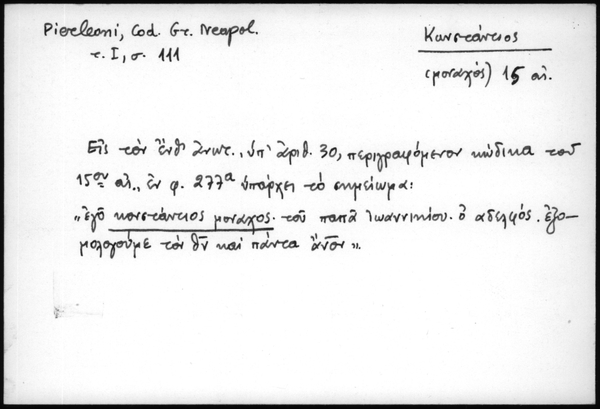 Pierleoni, Cod. Gr. Neapol.
τ. I, σ. 111
Κωνστάντιος
(μοναχός) 15 αἰ.
Εἰς τὸν ἔνθ' ἀνωτ., ὑπ' ἀριθ. 30, περιγραφόμενον κώδικα τοῦ
15ου αἰ., ἐν φ. 277α ὑπάρχει τὸ σημείωμα:
"ἐγὸ κονστάντιος μοναχος. τοῦ παπᾶ ἰωαννικίου. ὁ αδελφός. ἐξο-
μολογούμε τὸν θν καὶ πάντα ἄνον".